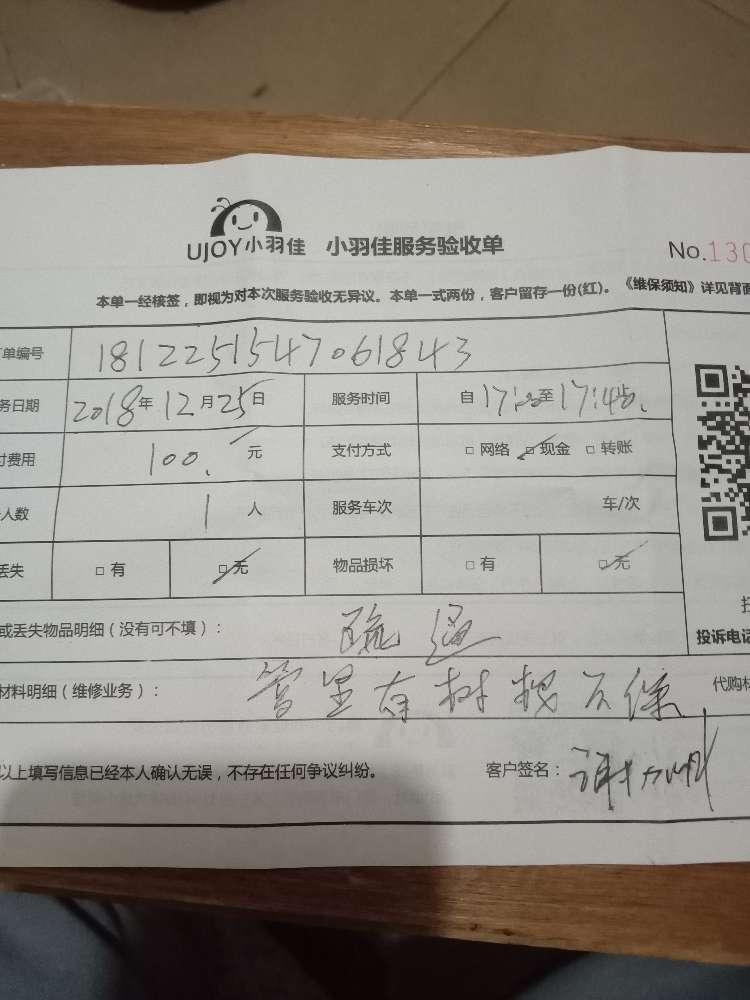 UJOY小羽佳 小羽佳服务验收单 No.130
本单一经核签，即视为对本次服务验收无异议。本单一式两份，客户留存一份(红)。《维保须知》详见背面
单编号 1812251547061843
务日期 2018年12月25日 服务时间 自17: 至17:45
付费用 100.元 支付方式 □网络 □现金 □转账
人数 1人 服务车次 车/次
丢失 □有 □无 物品损坏 □有 □无
或丢失物品明细（没有可不填）： 疏通
投诉电话
材料明细（维修业务）： 管里有树根不保 代购材
以上填写信息已经本人确认无误，不存在任何争议纠纷。 客户签名：